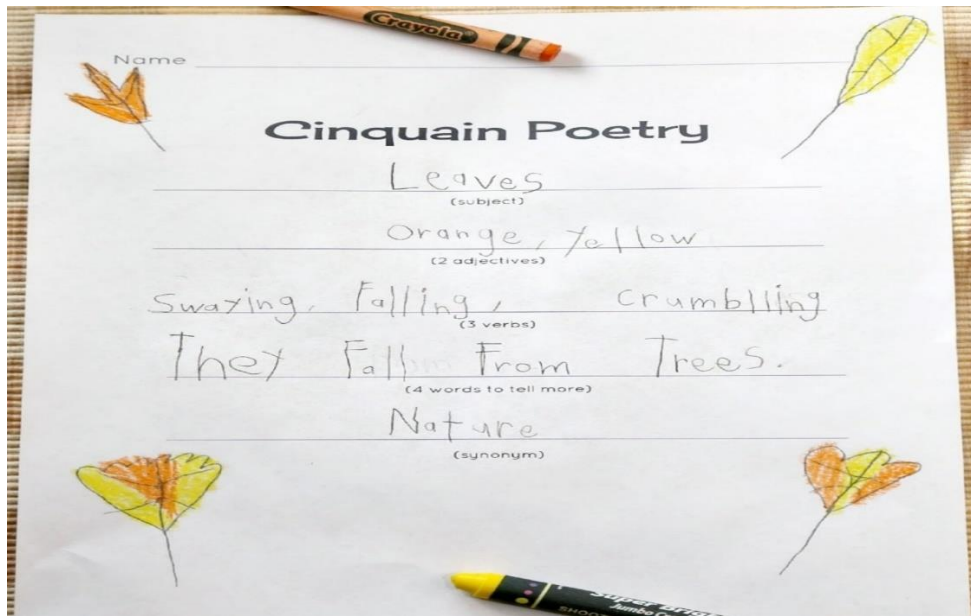 Crayola
Name
Cinquain Poetry
Leaves
(subject)
Orange, Yellow
(2 adjectives)
Swaying, Falling, crumblling
(3 verbs)
They Fall From Trees.
(4 words to tell more)
Nature
(synonym)
Super Bright
Jumbo